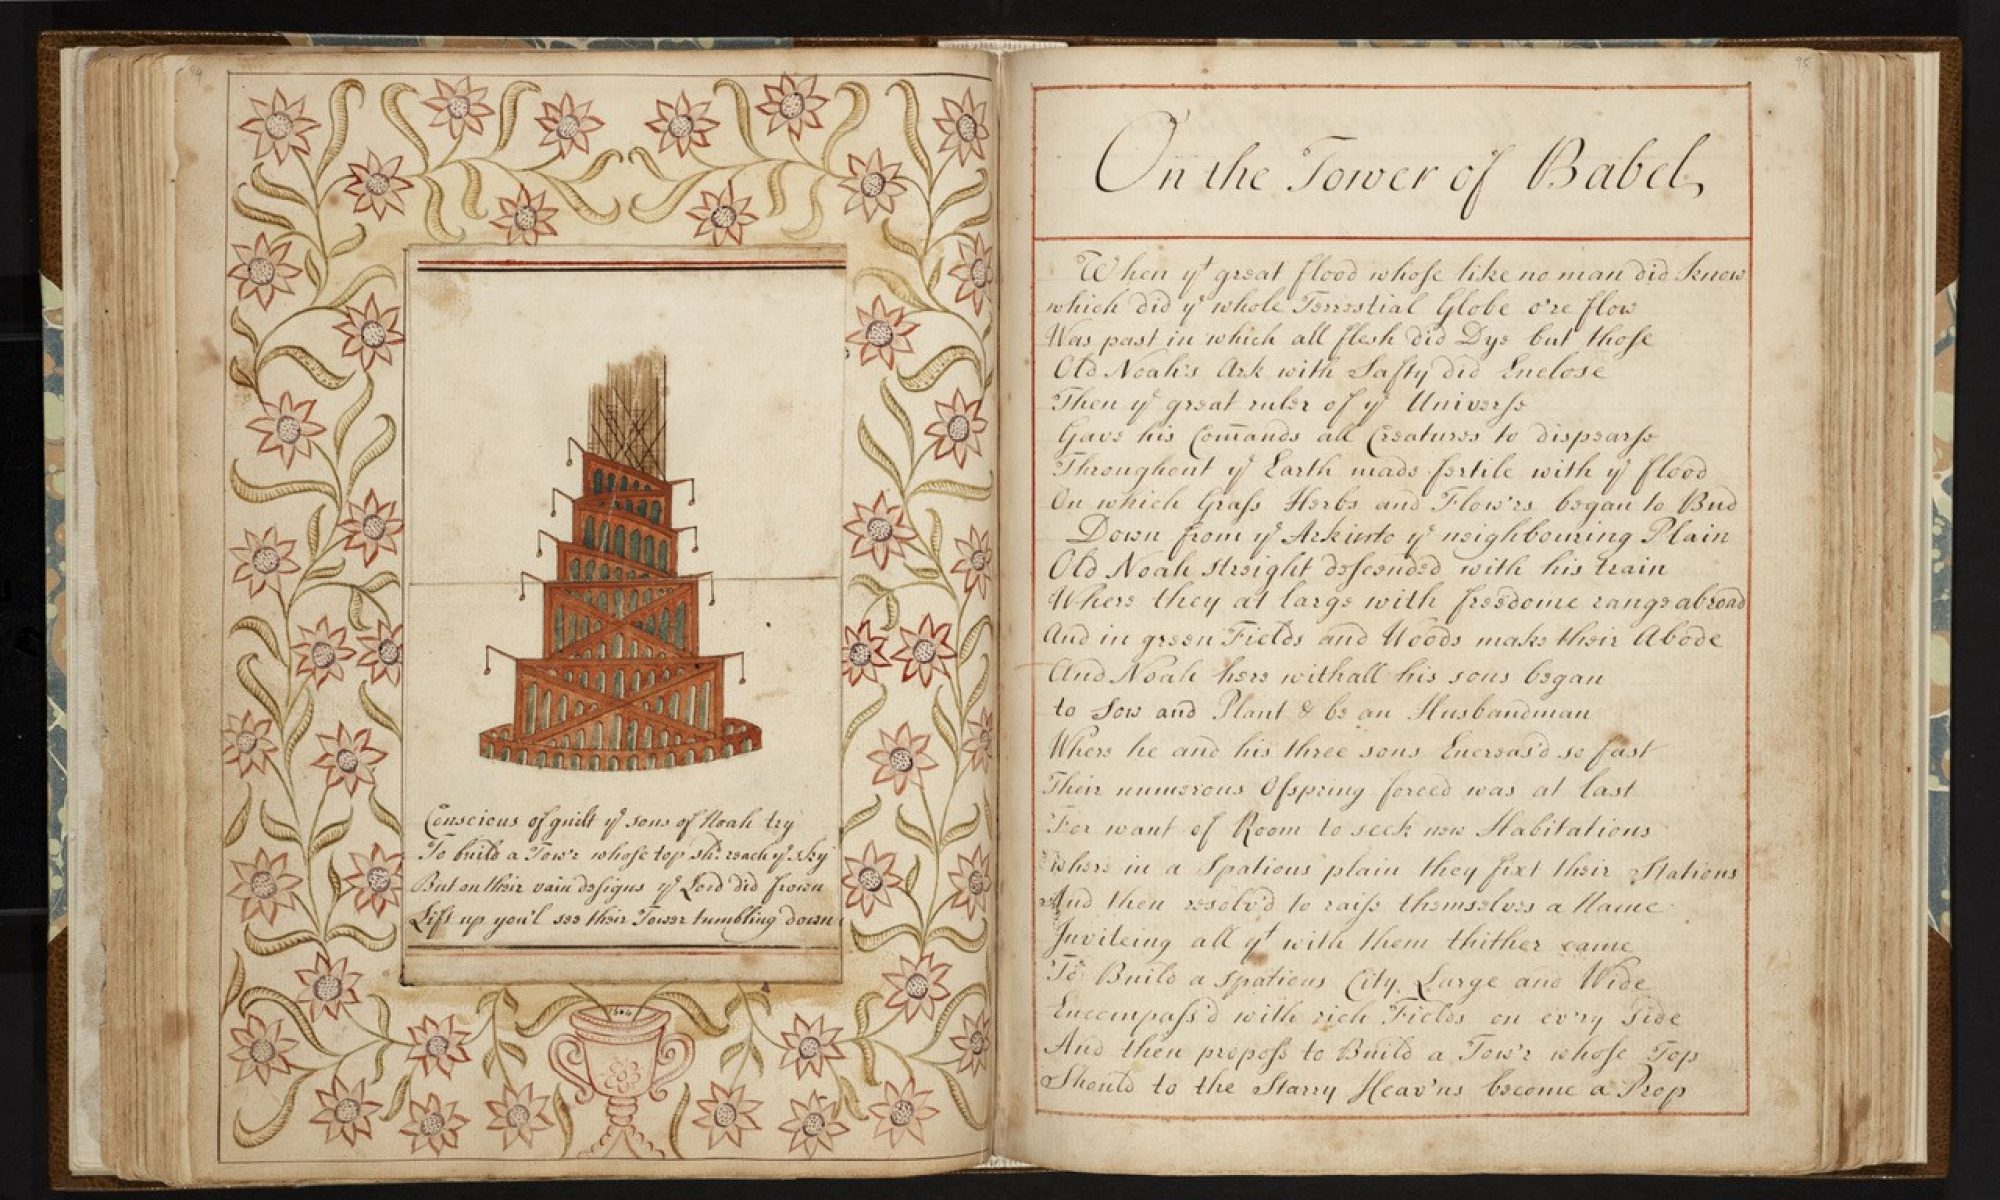 94
Conscious of guilt yᵉ sons of Noah try
To build a Tow'r whose top shᵈ reach yᵉ sky
But on their vain designs yᵉ Lord did frown
Lift up you'l see their Tower tumbling down
95
On the Tower of Babel,
When yᵗ great flood whose like no man did know
which did yᵉ whole Terrestial Globe o're flow
Was past in which all flesh did Dye but those
Old Noah's Ark with Safty did Enclose
Then yᵉ great ruler of yᵉ Universe
Gave his Comands all Creatures to dispearse
Throughout yᵉ Earth made fertile with yᵉ flood
On which Grass Herbs and Flow'rs began to Bud
Down from yᵉ Ark into yᵉ neighbouring Plain
Old Noah streight descended with his train
Where they at large with freedome range abroad
And in green Fields and Woods make their Abode
And Noah here withall his sons began
to Sow and Plant & be an Husbandman
Where he and his three sons Encreas'd so fast
Their numerous Ofspring forced was at last
For want of Room to seek new Habitations
where in a Spatious plain they fixt their Stations
And then resolv'd to raise themselves a Name
Inviteing all yᵗ with them thither came
To Build a spatious City Large and Wide
Encompass'd with rich Fields on ev'ry Side
And then propose to Build a Tow'r whose Top
Should to the Starry Heav'ns become a Prop